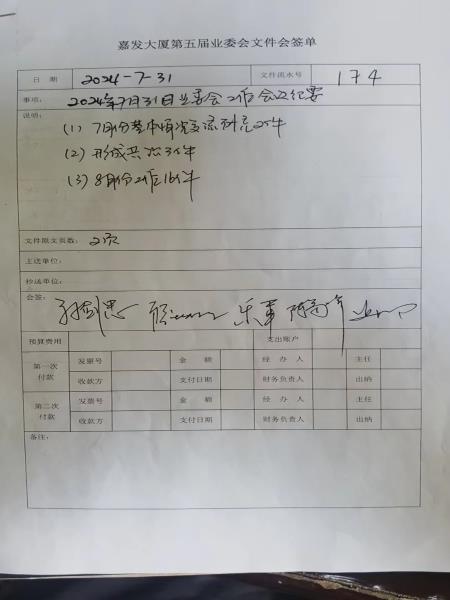 嘉发大厦第五届业委会文件会签单
日 期 2024-7-31 文件流水号 174
事项: 2024年7月31日业委会工作会议纪要
说明:
(1) 7月份基本情况
(2) 形成共识3件
(3) 8月份工作16件
文件原文页数: 2页
主送单位:
抄送单位:
会签:
预算费用 支出账户
第一次付款 发票号 金 额 经 办 人 主任
收款方 支付日期 财务负责人 出纳
第二次付款 发票号 金 额 经 办 人 主任
收款方 支付日期 财务负责人 出纳
备注: